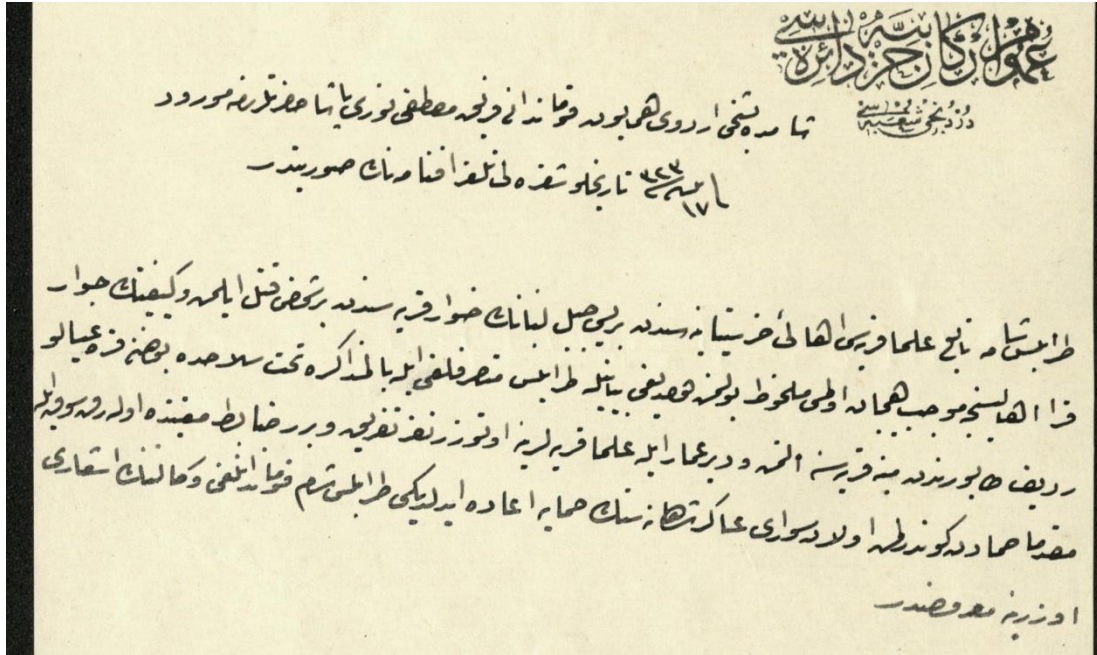 عموم اركان حربيه دائره سى
دردنجى شعبه سى
شامده بشنجى اردوى همايون قوماندانى فريق مصطفى نورى پاشا حضرتلرندن مورود
١٧ ٣٢٣ تاريخلو شفره لى تلغرافنامه نك صورتيدر
طرابلس شامه تابع علما قريه سى اهالئ خرستيانيه سندن بريسى جبل لبنانك جوار قريه سندن بر شخص قتل ايلمش وكيفيتك جوار
قرا اهاليسنجه موجب هيجان اولمسى ملحوظ بولنمش ايله طرابلس متصرفلغى ايله بالمذاكره تحت سلاحده بولنان
رديف طابورندن مينه قريه سنه و ديرعمار ايله علما قريه لرينه اوتوزر نفر تفريق و برر ضابط معيتنده اوله رق سوق ايله
مقدما حمادن كوندريلان اولان سوارى عساكر شاهانه سنك حمايه اعاده ايدلديكى طرابلس شام قوماندانلغى وكالتنك اشعارى
اوزرينه معروضدر